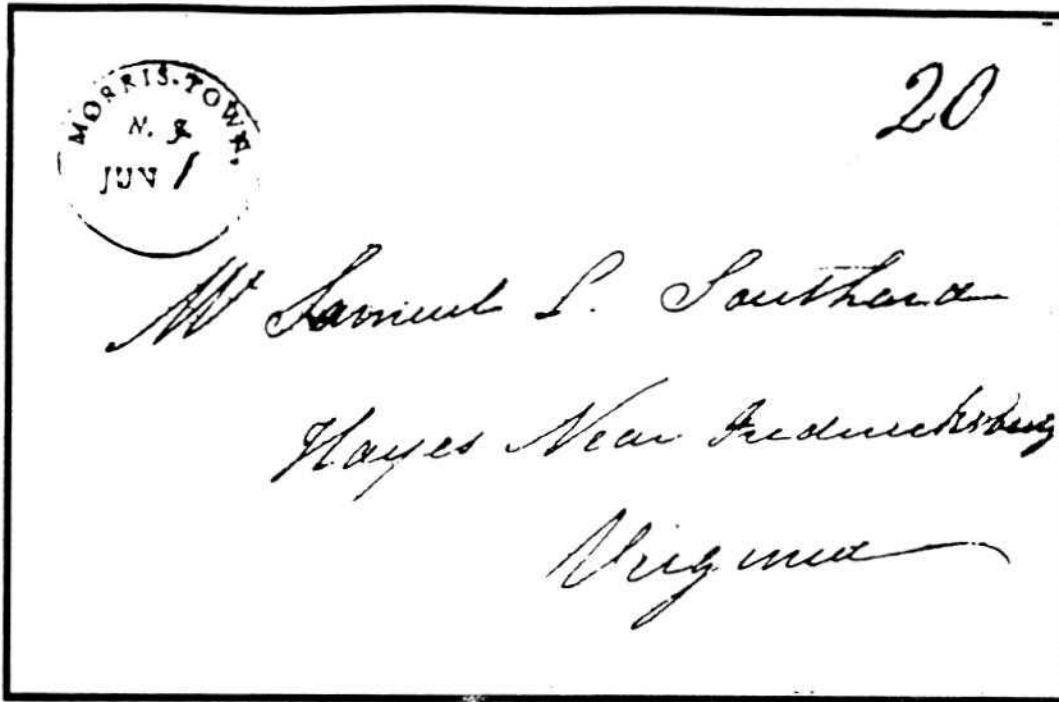 MORRIS-TOWN,
N. J.
JUN 1
20
Mr Samuel L. Southard
Hayes Near Fredericksburg
Virginia